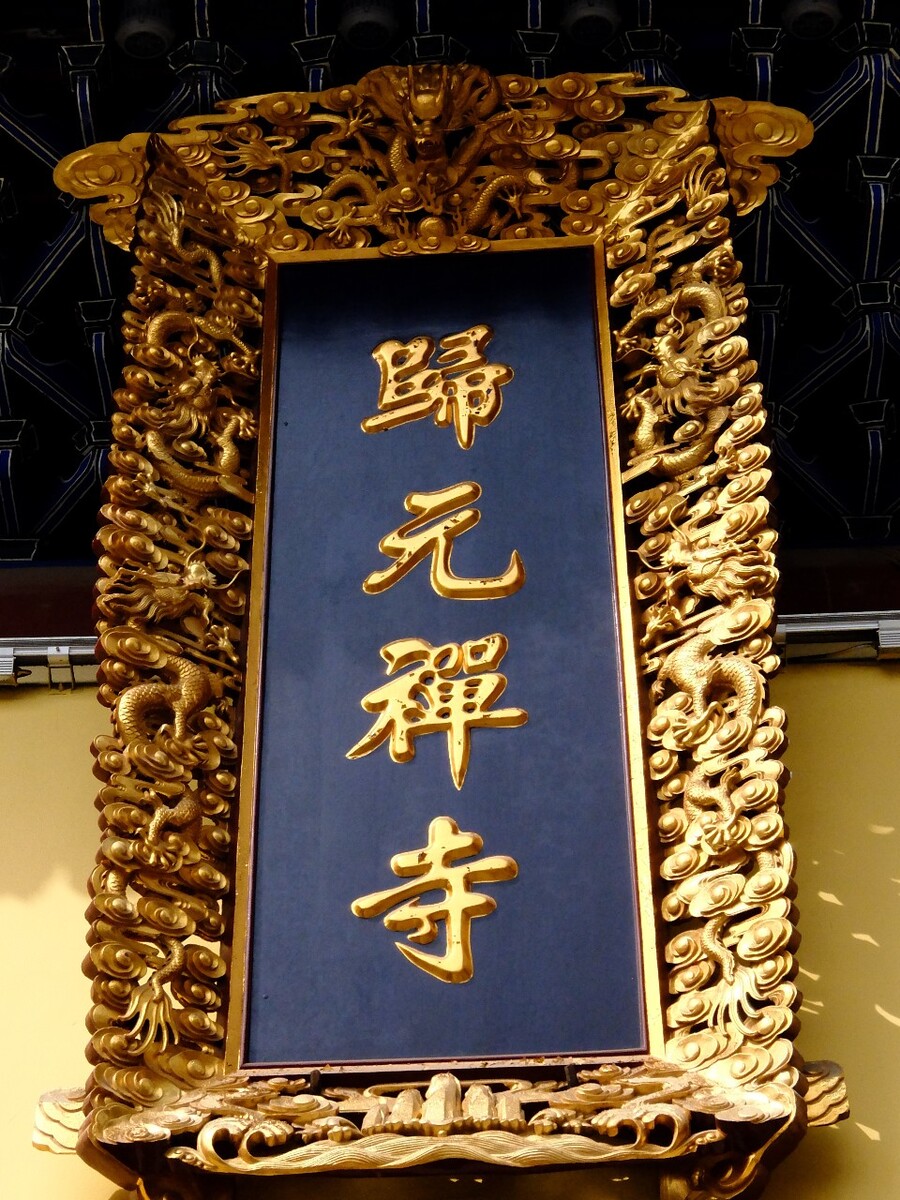 歸元禪寺